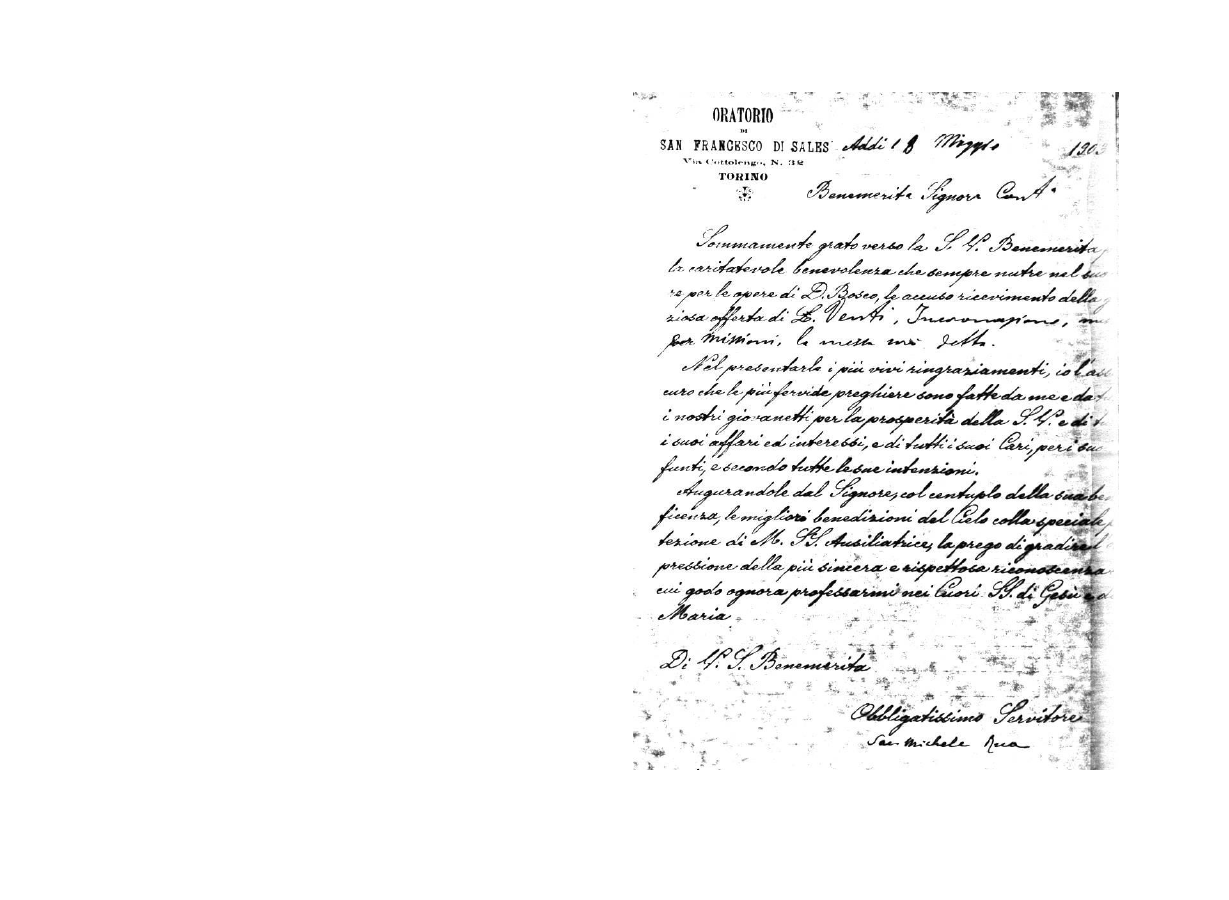 ORATORIO
DI
SAN FRANCESCO DI SALES
Via Cottolengo, N. 32
TORINO
Addì 18 Maggio 1903
Benemerita Signora Cont.ª
Sommamente grato verso la S. V. Benemerita
la caritatevole benevolenza che sempre nutre nel suo
re per le opere di D. Bosco, le accuso ricevimento della
ziosa offerta di L. Venti, Incoronazione,
per missioni, la messa detta.
Nel presentarle i più vivi ringraziamenti, io l'as
curo che le più fervide preghiere sono fatte da me e da
i nostri giovanetti per la prosperità della S. V. e di
i suoi affari ed interessi, e di tutti i suoi Cari, per i suoi
funti, e secondo tutte le sue intenzioni.
Augurandole dal Signore, col centuplo della sua be
ficenza, le migliori benedizioni del Cielo colla speciale
tezione di M. SS. Ausiliatrice, la prego di gradire
pressione della più sincera e rispettosa riconoscenza
cui godo ognora professarmi nei Cuori SS. di Gesù e d
Maria
Di V. S. Benemerita
Obbligatissimo Servitore
Sac. Michele Rua